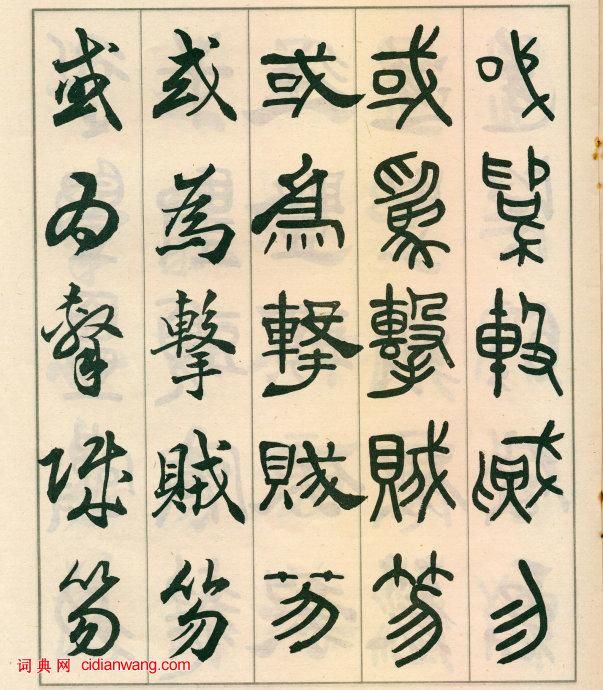 或為擊賊笏
或為擊賊笏
或為擊賊笏
或為擊賊笏
或為擊賊笏
词典网 cidianwang.com